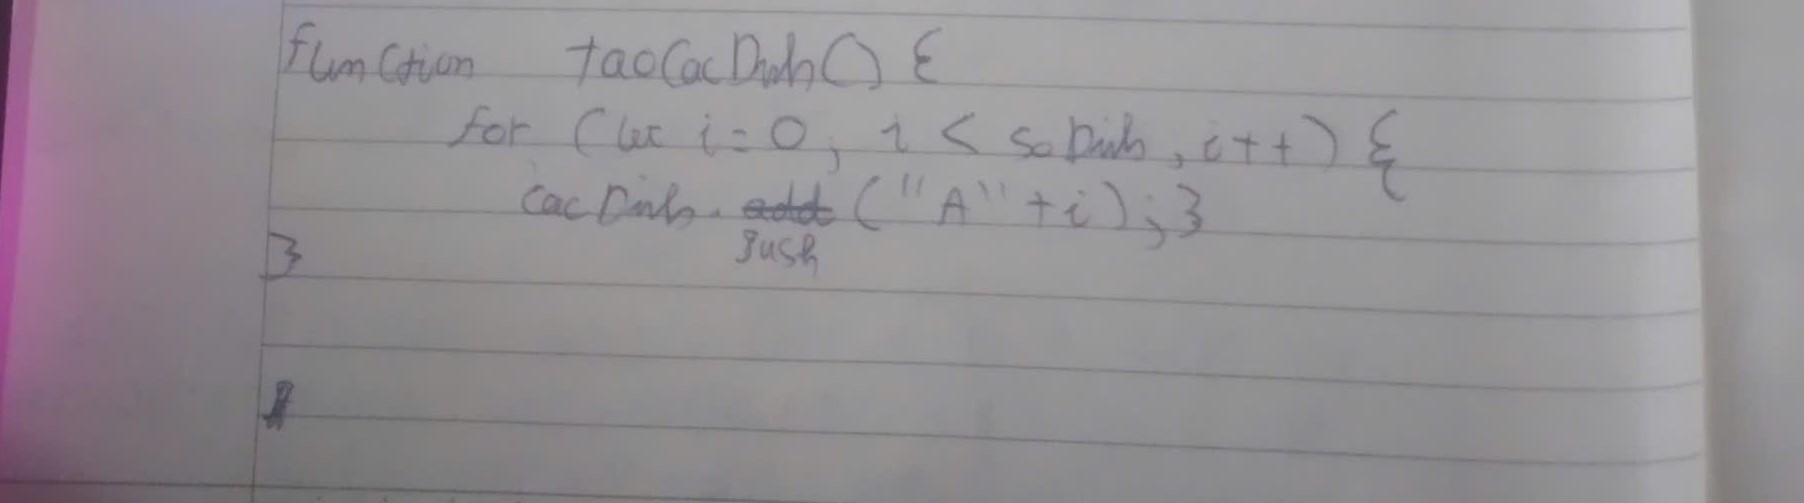 function taoCacDinh() {
for (let i = 0; i < soDinh, i++) {
cacDinh. push ("A" + i); }
}